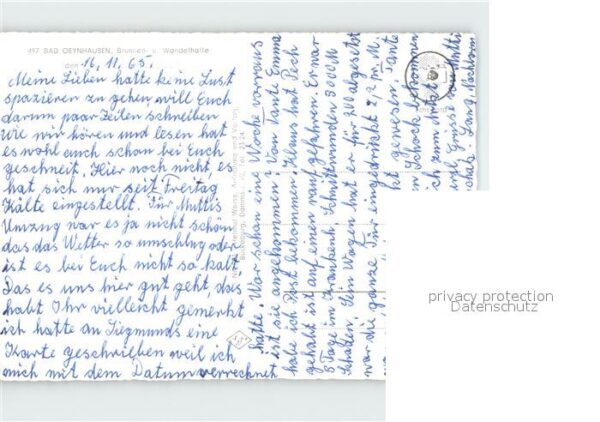 497 BAD OEYNHAUSEN, Brunnen- u. Wandelhalle
den 16.11.65.
Meine Lieben hatte keine Lust
spazieren zu gehen, will Euch
darum paar Zeilen schreiben
Wie wir hören und lesen hat
es wohl auch schon bei Euch
geschneit. Hier noch nicht, es
hat sich nur seit Freitag
Kälte eingestellt. Für Muttis
Umzug war es ja nicht schön
das das Wetter so umschlug oder
ist es bei Euch nicht so kalt.
Das es uns hier gut geht, das
habt Ihr vielleicht gemerkt
ich hatte an Siegmunds eine
Karte geschrieben weil ich
mich mit dem Datum verrechnet
hatte. War schon eine Woche vorraus
ist sie angekommen? Von tante Emma
habe ich Post bekommen Klaus hat Pech
gehabt ist auf einen rauf gefahren. Er war
8 Tage im Krankenh. Schnittwunden 3000 M
Schaden. Sein Wagen hat er für 200 abgesetzt
war die ganze Tür eingedrückt 2,2 M
gewesen. Tante
Schock bekommen
ich zum Arzt
Grüsse von Mutti
privacy protection
Datenschutz